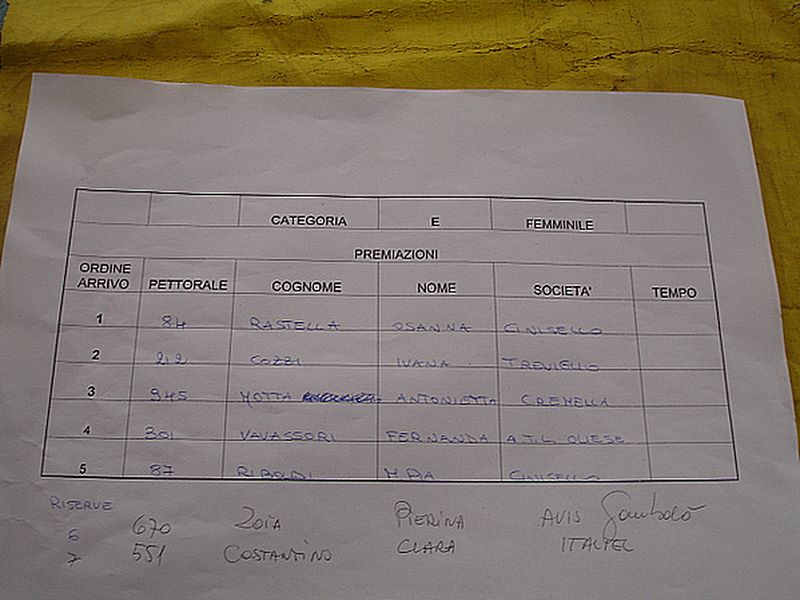 CATEGORIA E FEMMINILE
PREMIAZIONI
ORDINE ARRIVO PETTORALE COGNOME NOME SOCIETA' TEMPO
1 84 RASTELLA OSANNA CINISELLO
2 212 COZZI IVANA TREVIELLO
3 945 MOTTA ANTONIETTA CREMELLA
4 301 VAVASSORI FERNANDA A.T.L.
5 87 RIBOLDI CINISELLO
RISERVE
6 670 ZOIA PIERINA AVIS Gambolò
7 551 COSTANTINO CLARA ITALTEL